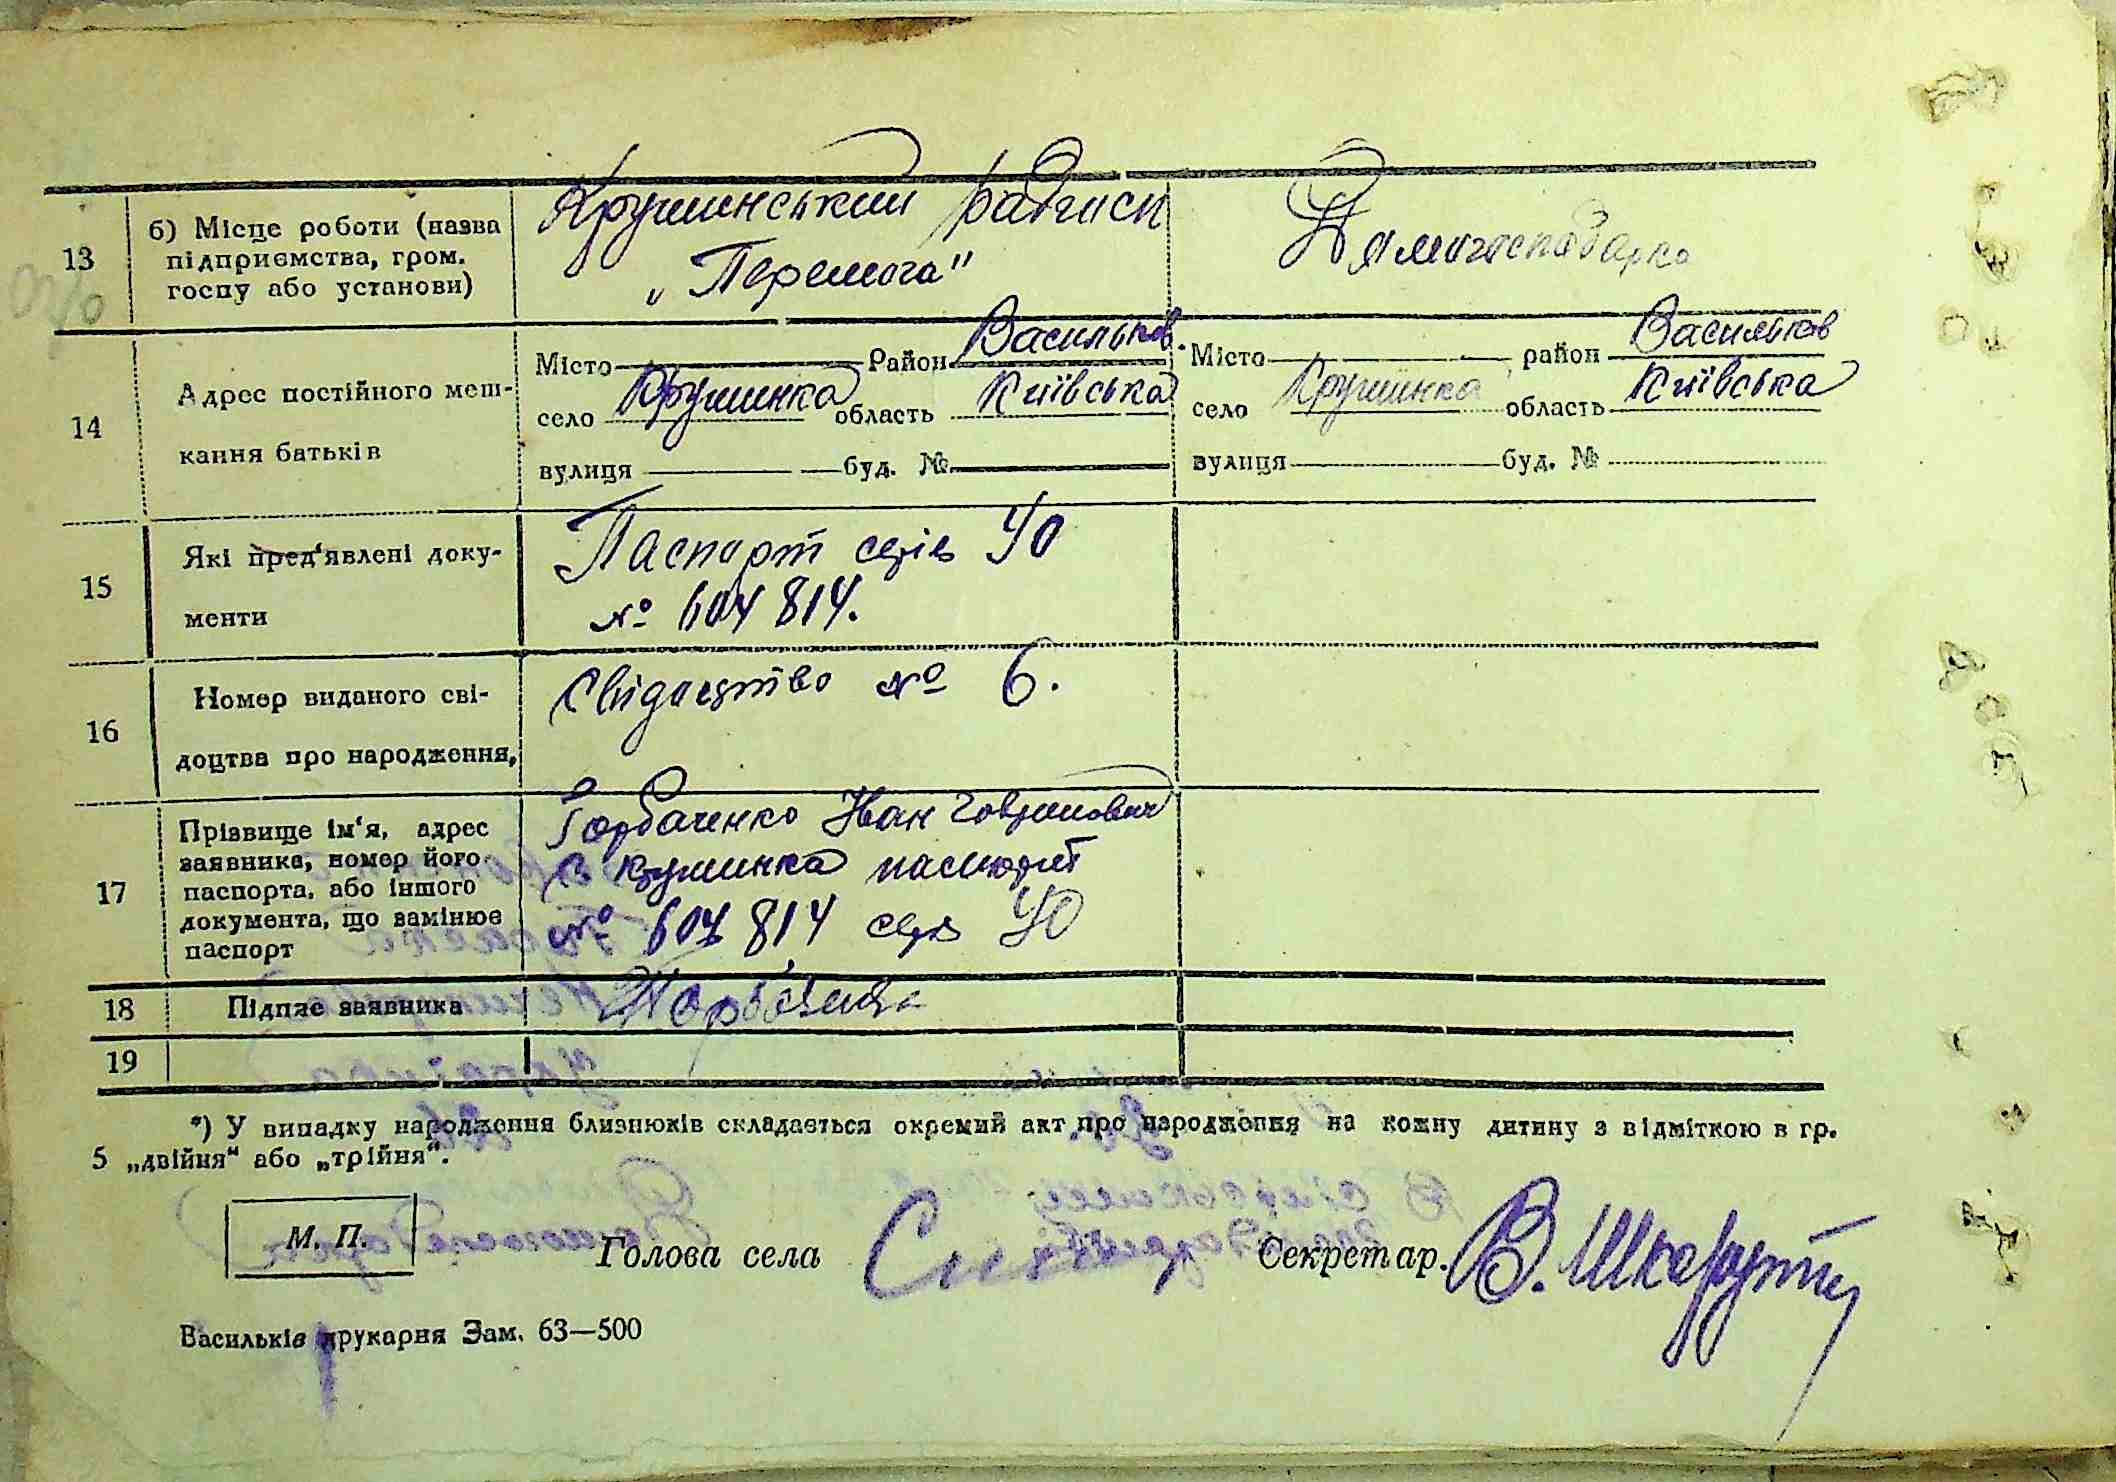 13 б) Місце роботи (назва підприємства, гром. госпу або установи) Крушинський радгосп „Перемога" Домогосподарка
14 Адрес постійного меш-
кання батьків
Місто Район Васильков. Місто район Васильков
село Крушинка область Київська село Крушинка область Київська
вулиця буд. № вулиця буд. №
15 Які пред'явлені доку-
менти
Паспорт серів УО
№ 604 814.
16 Номер виданого сві-
доцтва про народження,
Свідоцтво № 6.
17 Прізвище ім'я, адрес
заявника, номер його
паспорта, або іншого
документа, що замінює
паспорт
Горбаченко Іван
с Крушинка паспорт
№ 604 814 серів УО
18 Підпис заявника
19
*) У випадку народження близнюків складається окремий акт про народження на кожну дитину з відміткою в гр.
5 „двійня" або „трійня".
М. П.
Голова села Секретар. В.
Васильків друкарня Зам. 63—500